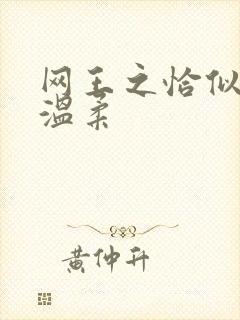 网王之恰似
温柔
黄仲升